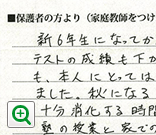 ■保護者の方より(家庭教師をつけ
新6年生になってか
テストの成績も下が
も、本人にとっては
ました。秋になる
十分消化する時間
塾の授業と家で